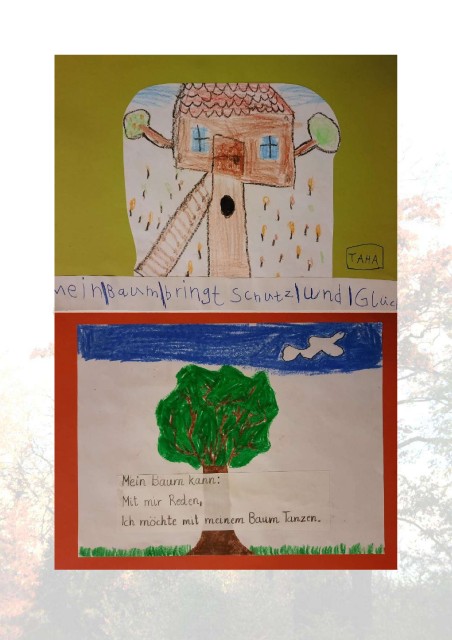 TAHA
mein/Baum/bringt Schutz/und/Glüc
Mein Baum kann:
Mit mir Reden,
Ich möchte mit meinem Baum Tanzen.